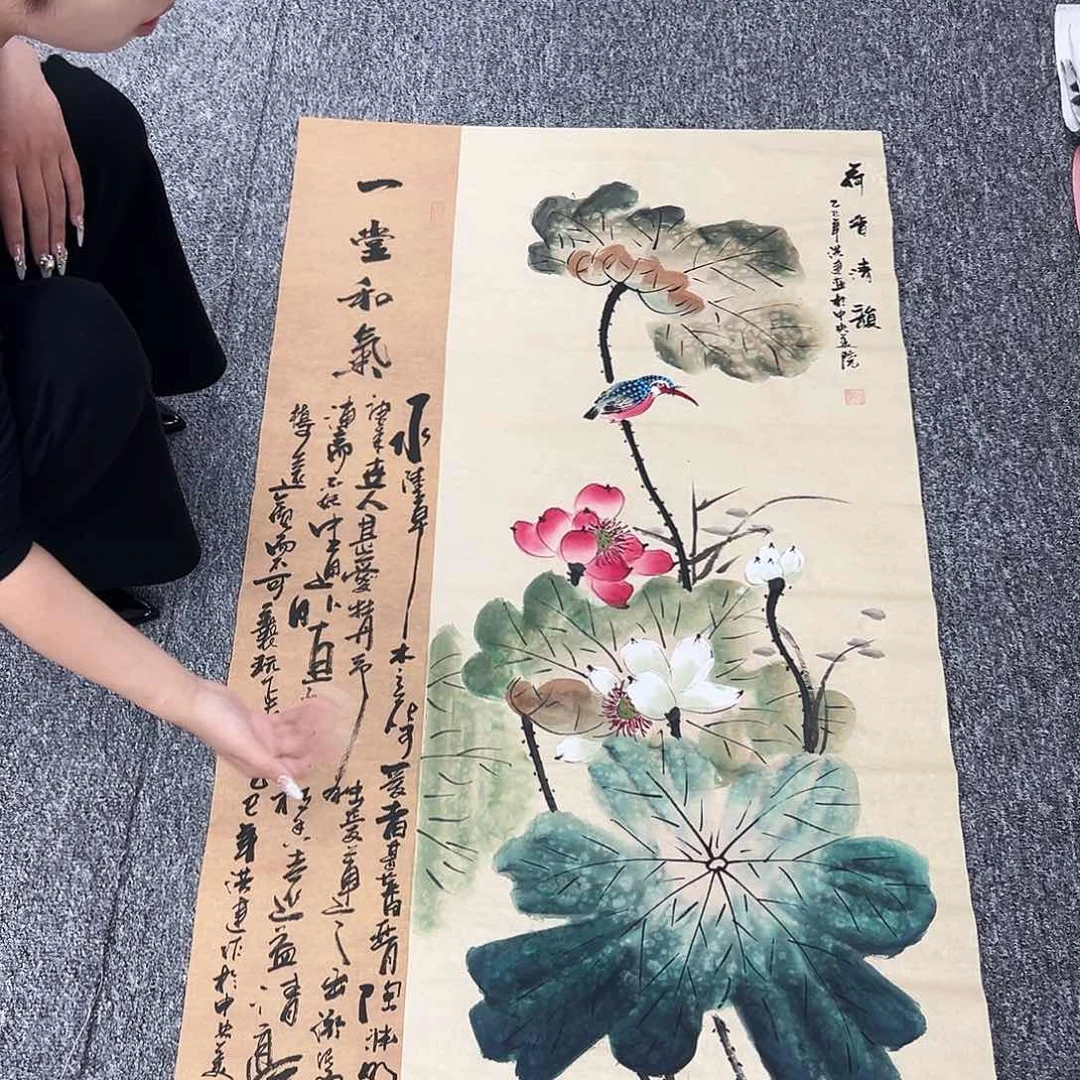 荷香清韻
乙巳年洪建於中央美院
一堂和氣
水陸草木之花可愛者甚蕃晉陶淵明
來世人甚愛牡丹予獨愛蓮之出淤泥
清漣而不妖中通外直不枝香遠益清亭
遠觀而不可褻玩焉乙巳年洪建作於中央美